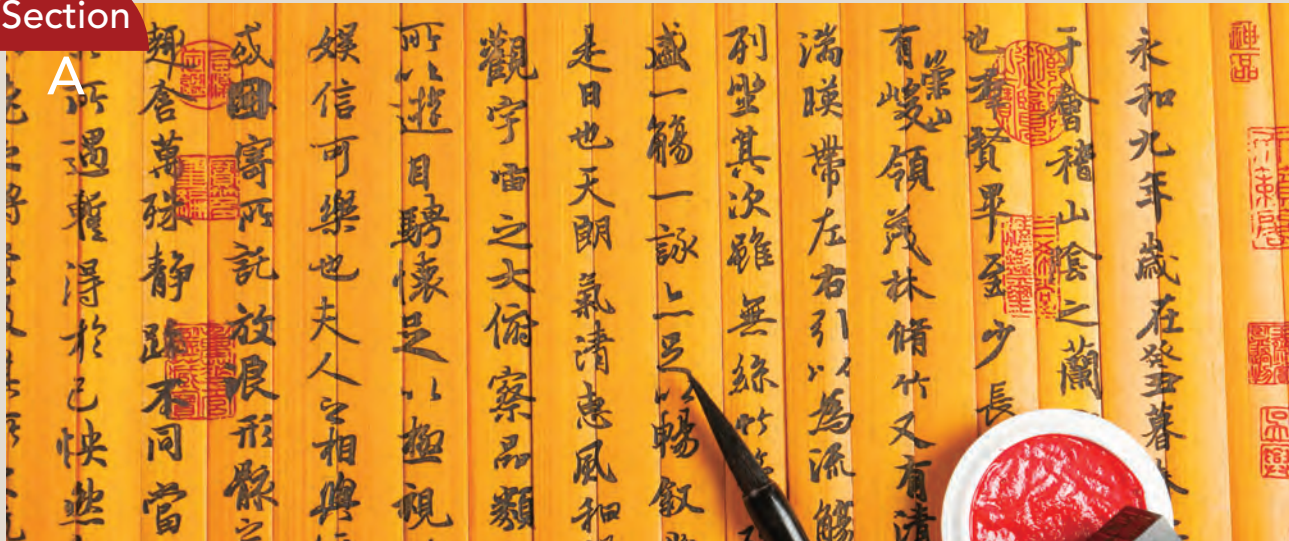 Section
A
神品
天籟閣
永和九年歲在癸丑暮春
于會稽山陰之蘭
也羣賢畢至少長
有崇山峻領茂林脩竹又有清
湍暎帶左右引以為流觴
列坐其次雖無絲竹管
盛一觴一詠亦足以暢敘
是日也天朗氣清惠風和
觀宇宙之大俯察品類
所以遊目騁懷足以極視
娛信可樂也夫人之相與
或因寄所託放浪形骸之
趣舍萬殊靜躁不同當
所遇蹔得於己快然